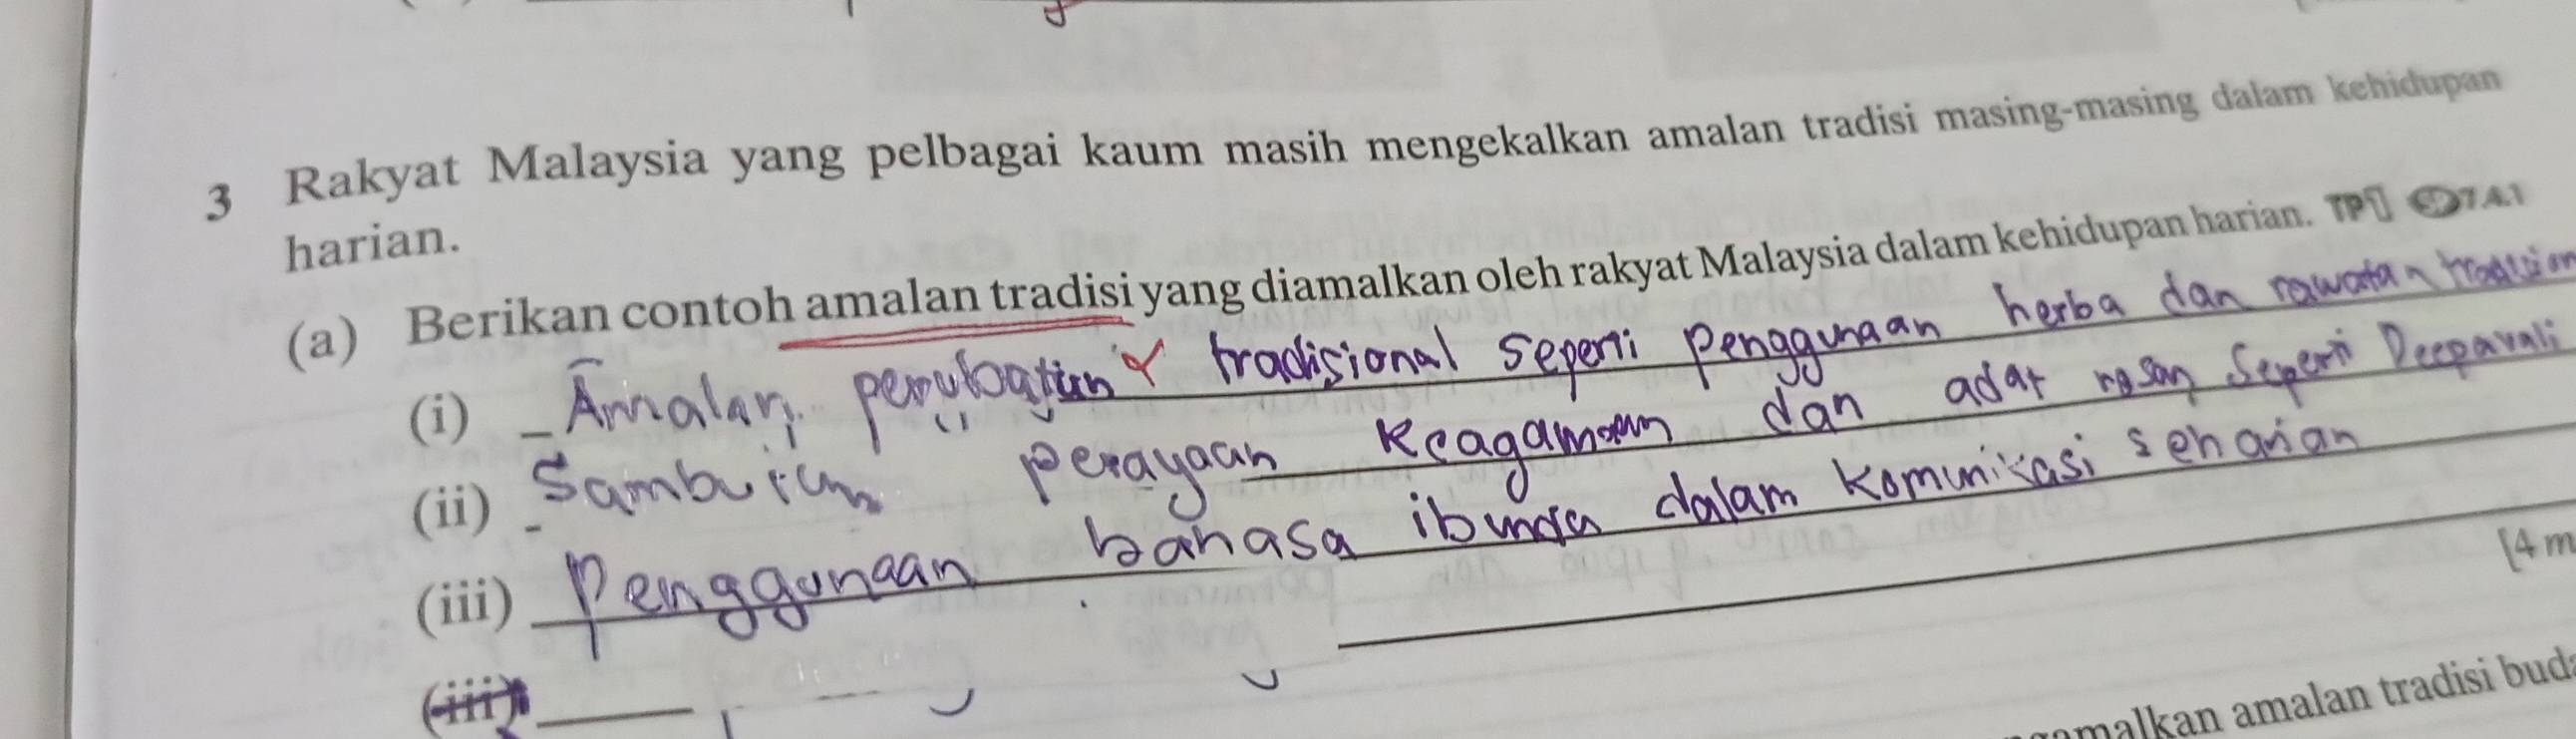 3 Rakyat Malaysia yang pelbagai kaum masih mengekalkan amalan tradisi masing-masing dalam kehidupan
harian.
(a) Berikan contoh amalan tradisi yang diamalkan oleh rakyat Malaysia dalam kehidupan harian. TP1 7.4.1
(i) Amalan perubatan tradisional seperti penggunaan herba dan rawatan tradision
(ii) Sambutan perayaan keagamaan dan adat resan seperti Deepavali
(iii) Penggunaan bahasa ibunda dalam komunikasi seharian
[4 m
(iii)
amalkan amalan tradisi buda